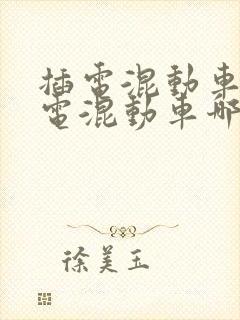 插電混動車
電混動車哪
徐美玉